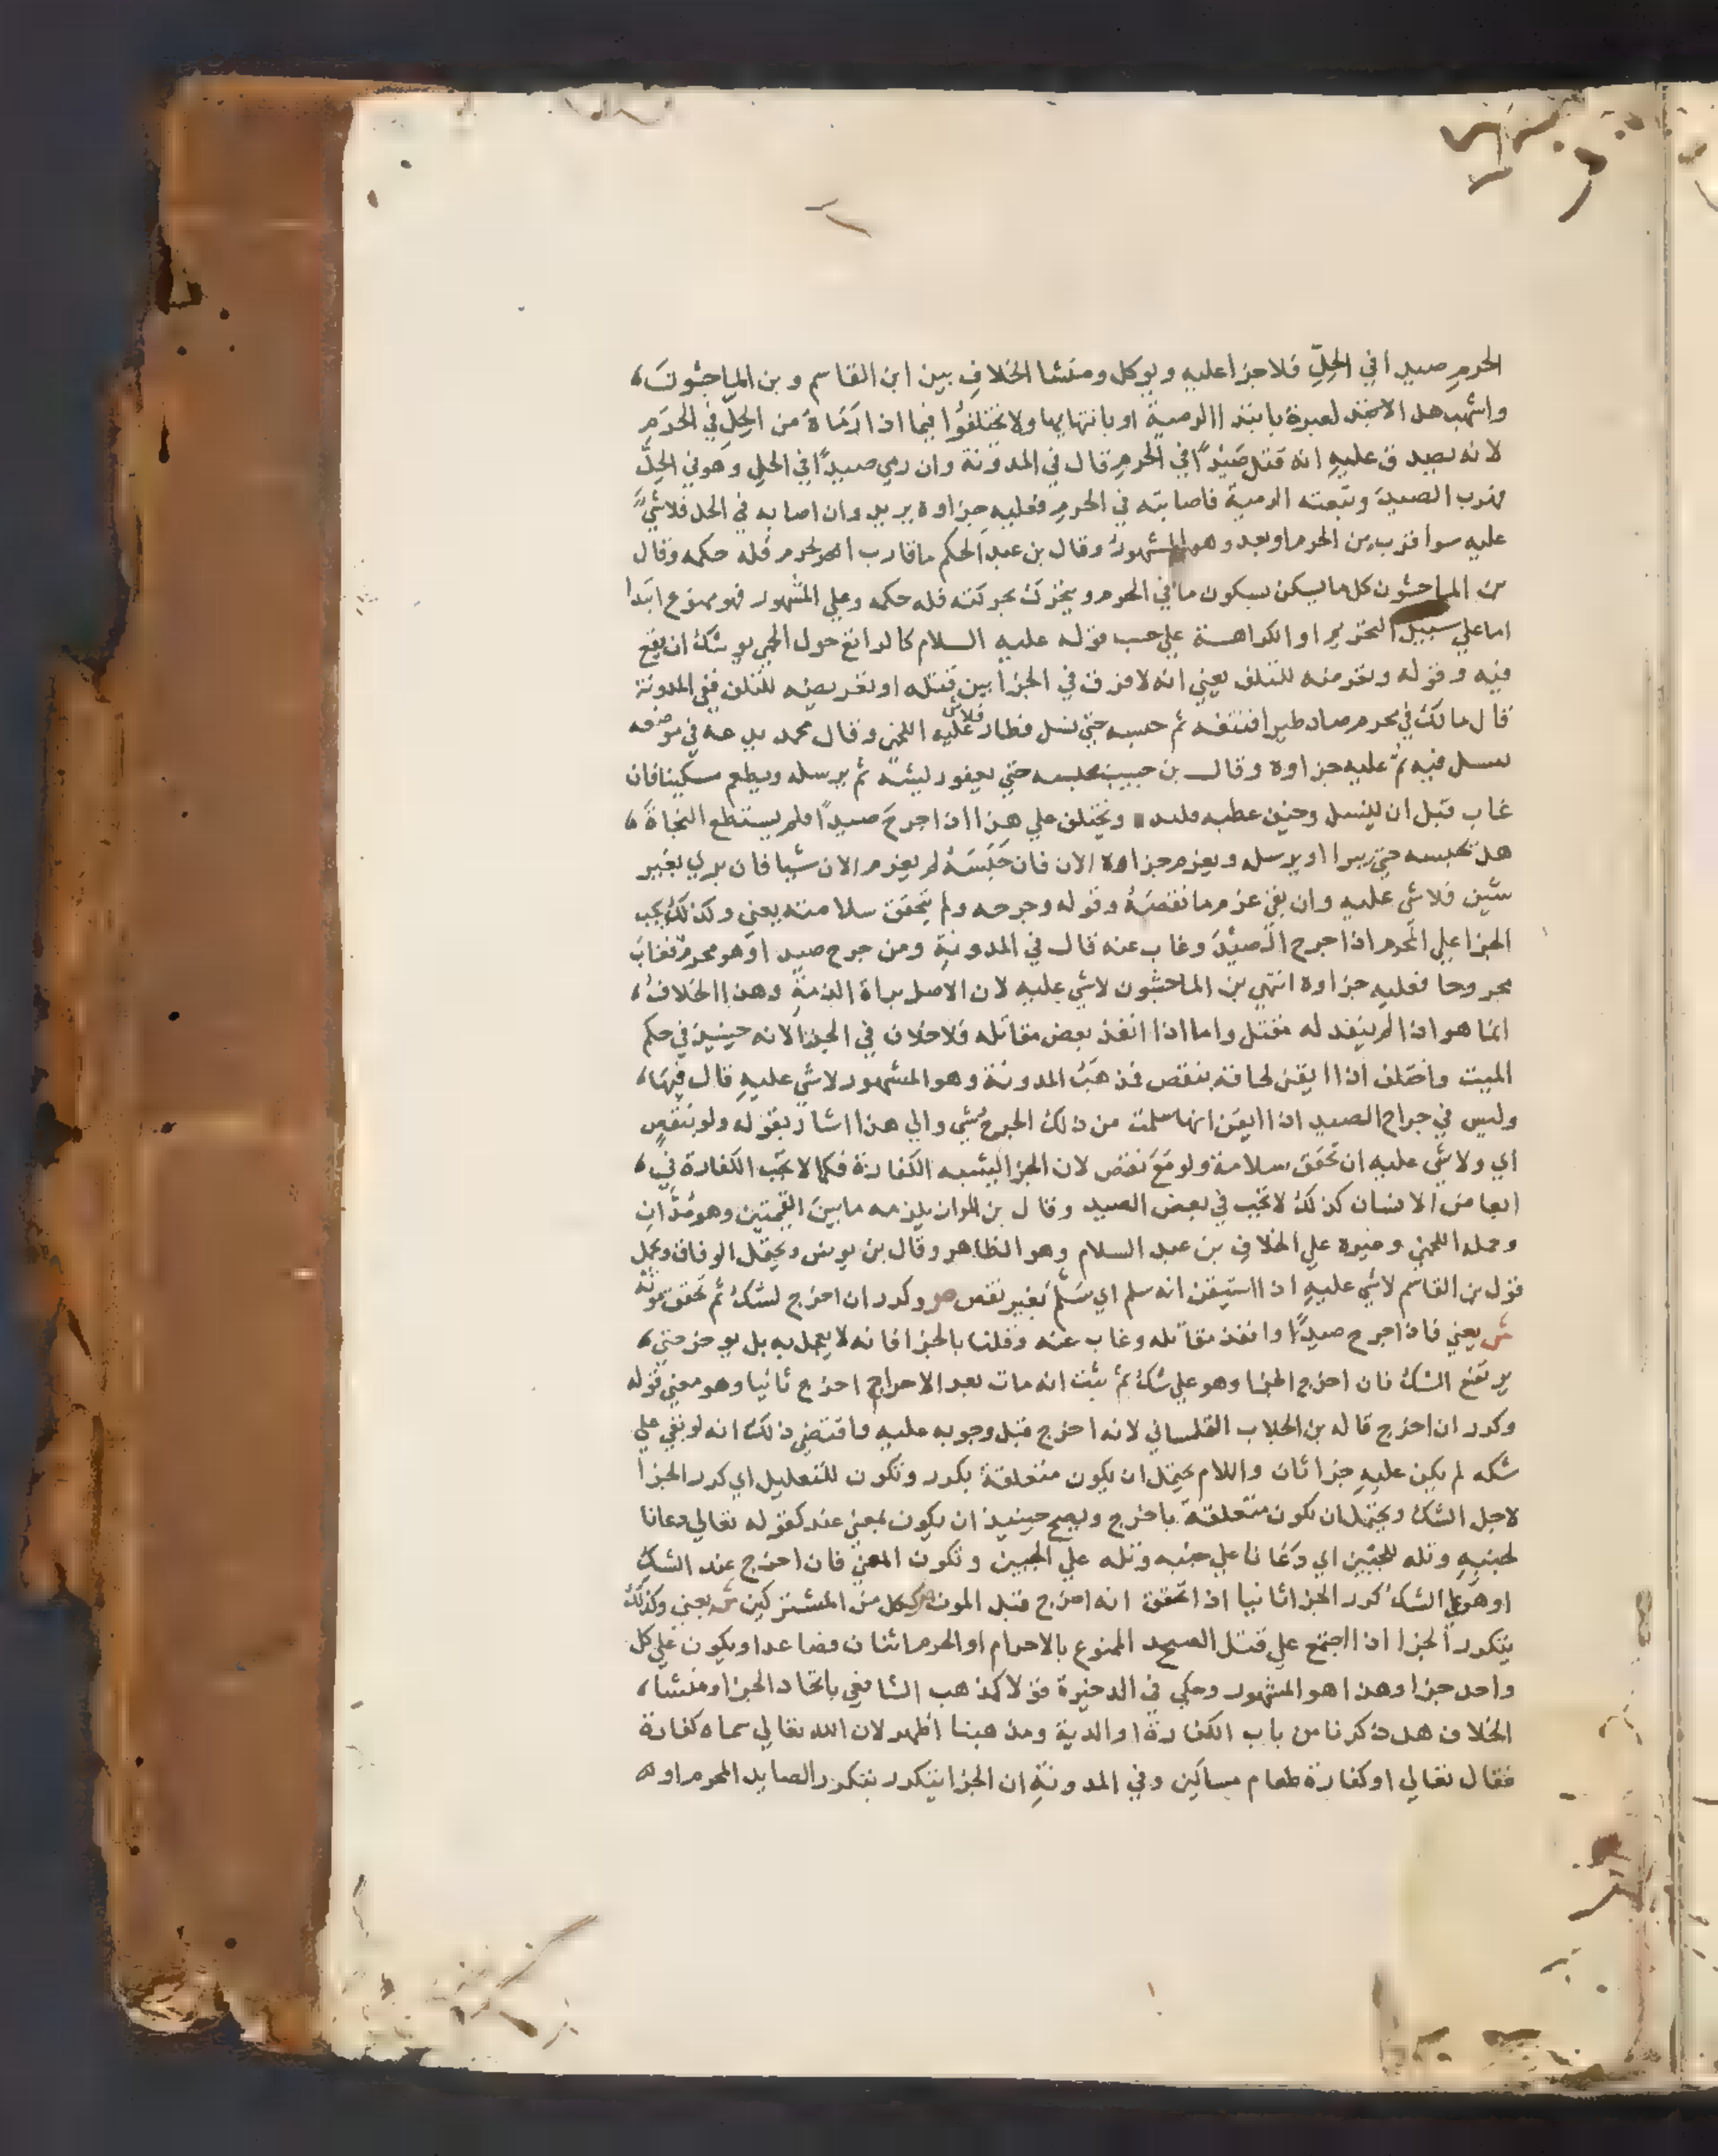 الحرم صيدا في الحِلِّ فلا جزا عليه ويوكل ومنشا الخلافِ بين ابن القاسم وبن الماجشون
واشهب هل الا العبرة بابتدا الرمية او بانتهايها ولا يختلفُوا فيما اذا ارَماهُ من الحِلِّ في الحرَمِ
لانه يصدق عليهِ انه قتل صَيْدًا في الحرمِ قال في المدونة وان رمي صيدًا في الحل وهو في الحِلِّ
فهرب الصيدَ وتبعته الرمية فاصابته في الحرم فعليه جزاوه يريد وان اصابه في الحل فلا شيَّ
عليه سوا قرب من الحرم او بعد وهو المشهور وقال بن عبد الحكم ما قارب الحرم فله حكمه وقال
بن الماجشون كل ما يسكن بسكون ما في الحرم ويتحرك بحركته فله حكمه وعلي المشهور فهو ممنوع ابتدا
اما علي سبيل التحريم او الكراهة علي حسب قوله عليه السلام كالراتع حول الحمي يوشك ان يقع
فيه وقوله وتعرضه للتلف يعني انه لا فرق في الجزا بين قتله او تعريضه للتلف ففي المدونة
قال مالك في محرم صاد طيرا فنتفه ثم حبسه حتي نسل فطار فلا شي عليه اللخمي وقال محمد يدعه في موضعه
نسل فيه ثمّ عليه جزاوه وقال بن حبيب يحبسه حتي يعود ريشه ثم يرسله ويطعم مسكينا فان
غاب قبل ان ينسل وخيف عطبه فليد ويختلف علي هذا اذا جرحَ صيدًا فلم يستطع النجاةَ
هل يحبسه حتي يبرا او يرسله ويغرم جزاوه الان فان حَبَسَهُ لم يغرم الان شيا فان بري بغير
شين فلا شي عليه وان بقي غرم ما نقصَهُ وقوله وجرحه ولم يتحقق سلامته يعني وكذلك يجب
الجزا علي المحرم اذا جرح الصيْدَ وغاب عنه قال في المدونةِ ومن جرح صيدا وهو محرمٌ فغابَ
مجروحا فعليه جزاوه انتهي بن الماجشون لا شي عليه لان الاصل براة الذمةِ وهذا الخلافُ
انما هو اذا لم ينفد له مقتل واما اذا انفذ بعض مقاتله فلا خلاف في الجزا لانه حينيذ في حكم
الميت واختلف اذا ايقن لحاقه بنقص فذهبُ المدونة وهو المشهور لا شي عليهِ قال فيها
وليس في جراح الصيد اذا ايقن انها سلمت من ذلك الجرح شي والي هذا اشار بقوله ولو بنقصٍ
اي ولا شي عليه ان تحقق سلامة ولو مَعَ نقص لان الجزا ليشبه الكفارة فكما لا تجب الكفارة في
ابعاض الانسان كذلك لا تجب في بعض الصيد وقال بن المواز يلزمه ما بين القيمتين وهو مُدَّانِ
وحمله اللخمي وغيره علي الخلافِ بن عبد السلام وهو الظاهر وقال بن يونس ويحتمل الوفاق ويحمل
قول بن القاسم لا شي عليهِ اذا استيقن انه سلم اي سَلِمَ بغير نقص ص وكرر ان اخرج لشك ثم تحقق موته
ش يعني فاذا جرح صيدًا وانفذ مقاتله وغاب عنه وقلنا بالجزا فانه لا يعجل به بل يوخر حتي
يرتفع الشك فان اخرج الجزا وهو علي شك ثم ثبت انه مات بعد الاخراج اخرج ثانيا وهو معني قوله
وكرر ان اخرج قاله بن الجلاب القلساني لانه اخرج قبل وجوبه عليه واقتضي ذلك انه لو بقي علي
شكه لم يكن عليهِ جزا ثان واللام يحتمل ان يكون متعلقة بكرر وتكون للتعليل اي كرر الجزا
لاجل الشك ويحتمل ان تكون متعلقة باخرج ويصح حينيذ ان يكون بمعني عند كقوله تعالي دعانا
لجنبهِ وتله للجبين اي دعانا علي جنبه وتله علي الجبين وتكون المعني فان اخرج عند الشك
او هو علي الشك كرر الجزا ثانيا اذا تحقق انه اخرج قبل الموت ص ككل من المشتركين ش يعني وكذلك
يتكرر الجزا اذا اجتمع علي قتل الصيد الممنوع بالاحرام او الحرم اثنان فصاعدا ويكون علي كل
واحد جزا وهذا هو المشهور وحكي في الدخيرة قولا كمذهب الشافعي باتحاد الجزا ومنشا
الخلاف هل ذكرنا من باب الكفارة او الدية ومذهبنا اظهر لان الله تعالي سماه كفارة
فقال تعالي او كفارة طعام مساكين وفي المدونةِ ان الجزا يتكرر بتكرر الصايد المحرم او